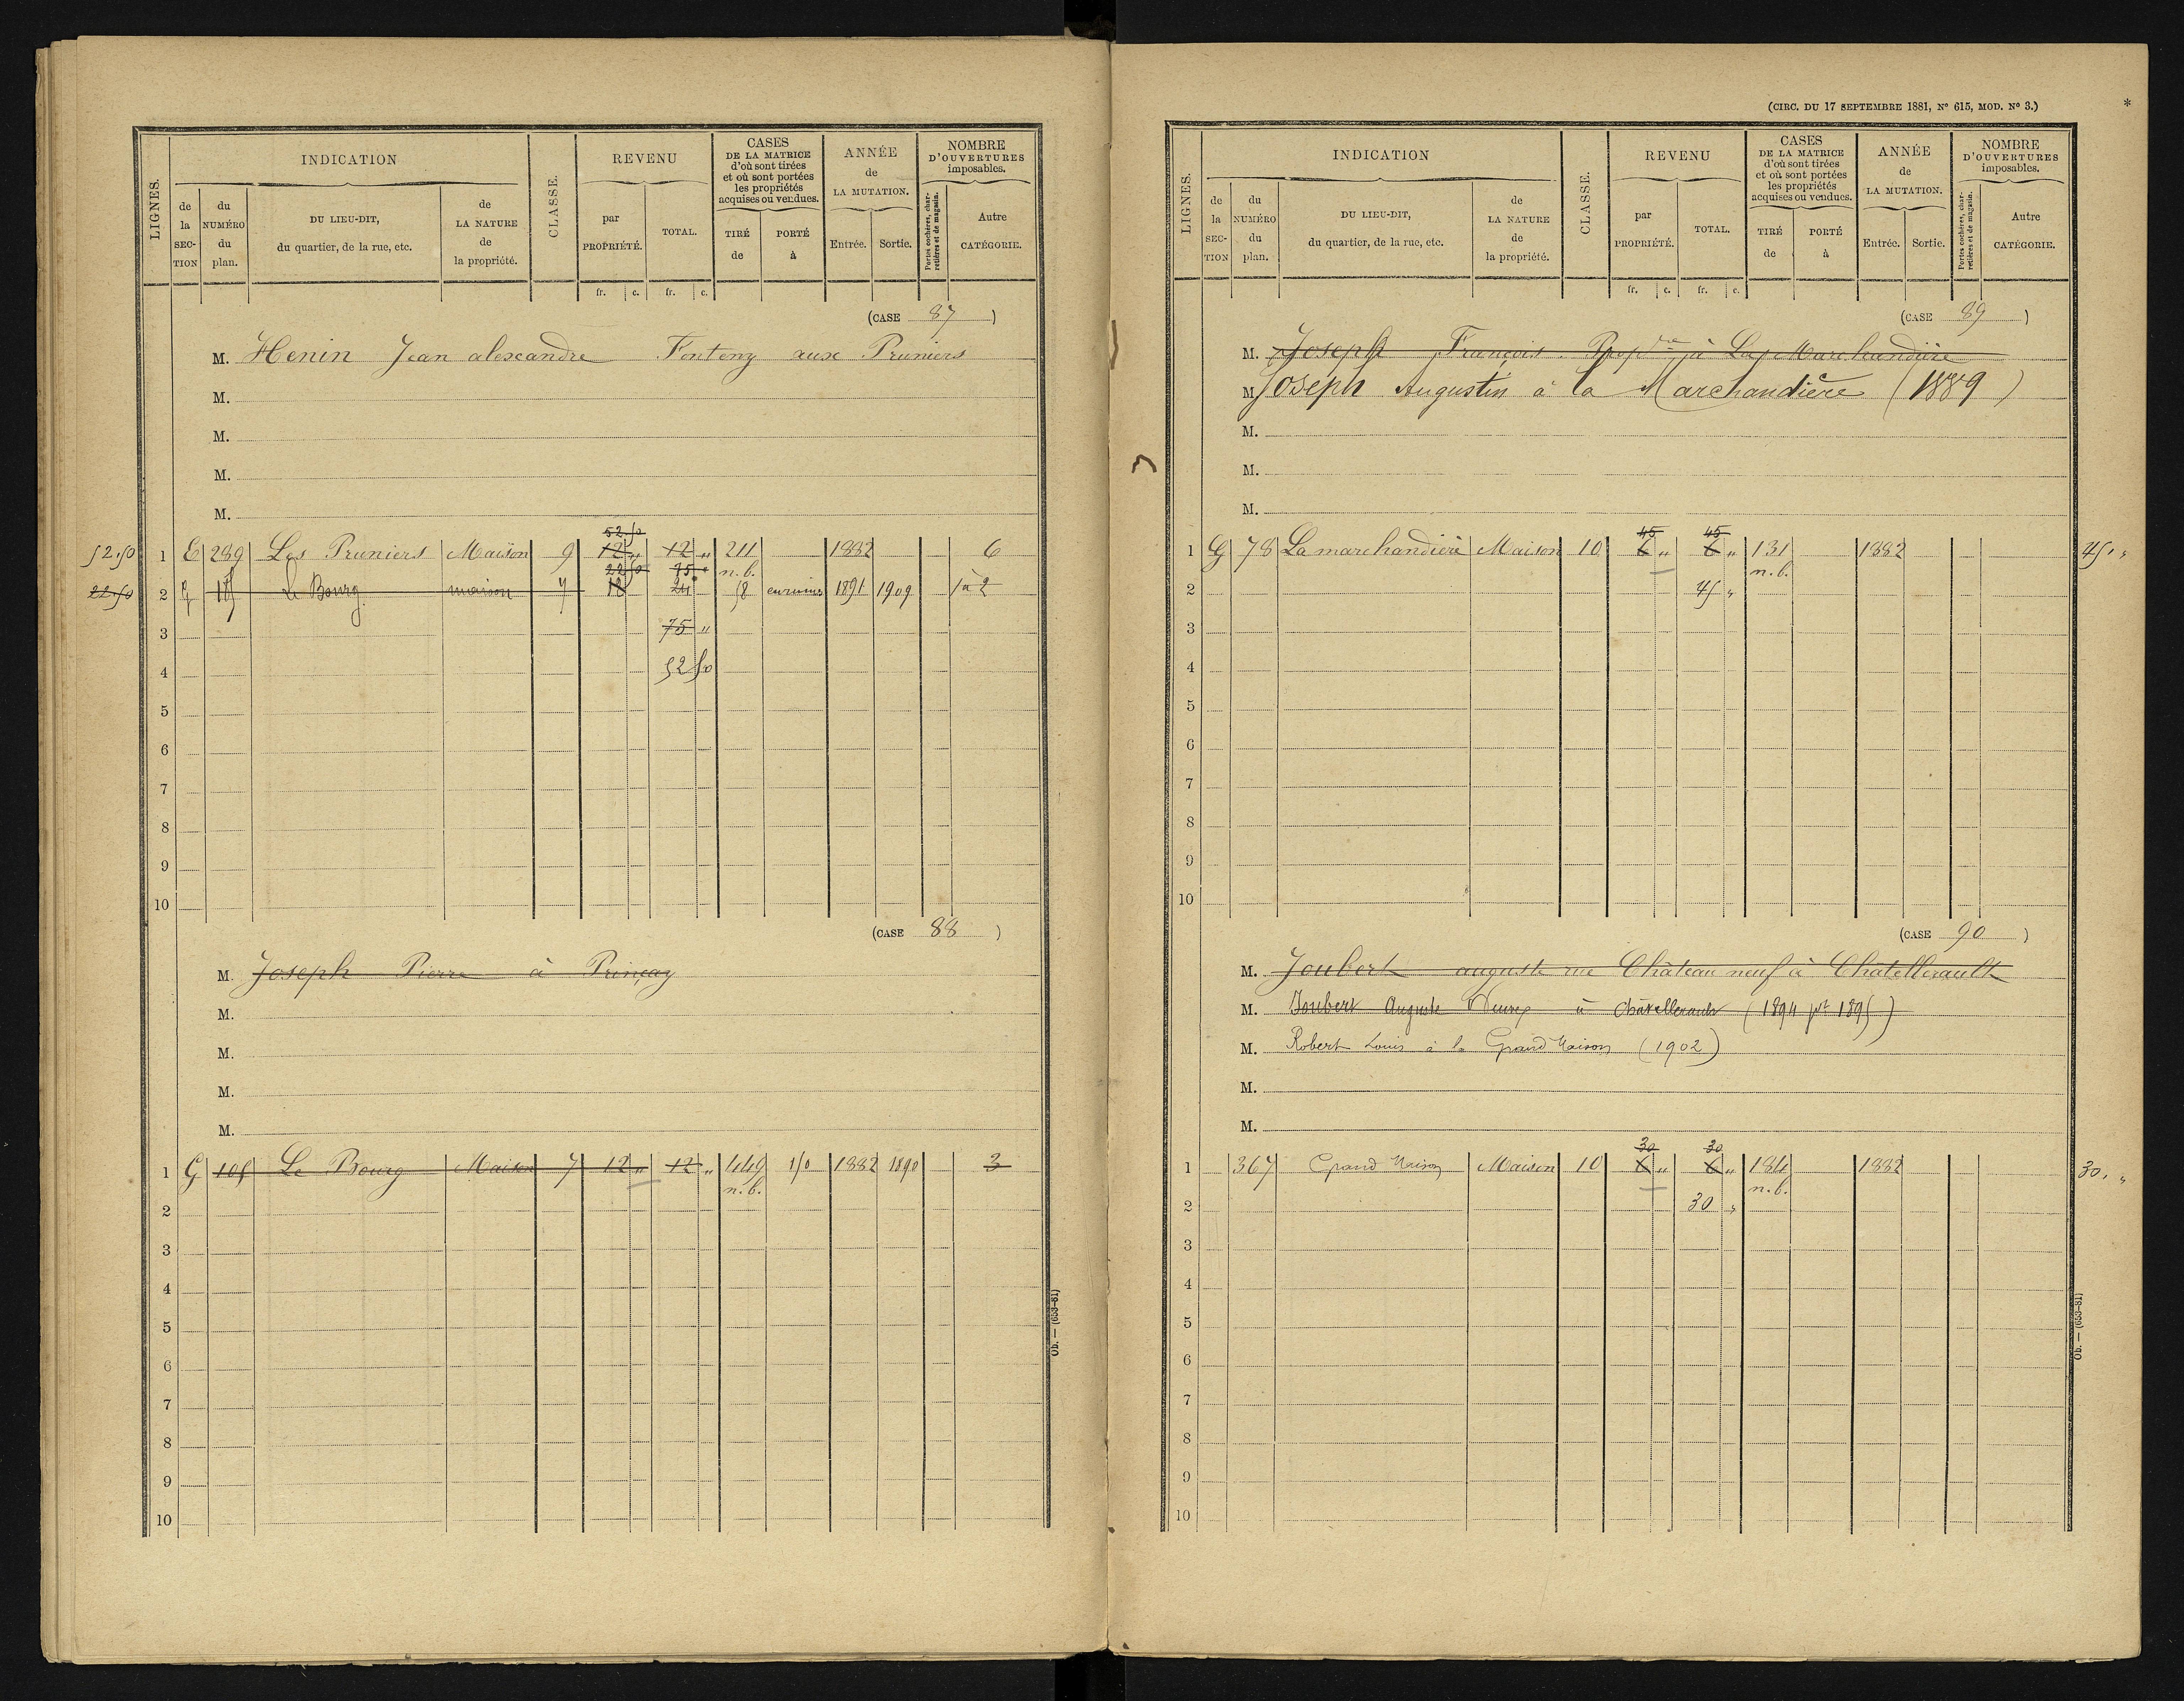 LIGNES.
INDICATION
CLASSE.
REVENU
CASES
DE LA MATRICE
d'où sont tirées
et où sont portées
les propriétés
acquises ou vendues.
ANNÉE
de
LA MUTATION.
NOMBRE
D'OUVERTURES
imposables.
de la SECTION
du NUMÉRO du plan.
DU LIEU-DIT,
du quartier, de la rue, etc.
de LA NATURE de la propriété.
par PROPRIÉTÉ.
TOTAL.
TIRÉ de
PORTÉ à
Entrée.
Sortie.
Portes cochères, charretières et de magasin.
Autre CATÉGORIE.
fr. c. fr. c.
(CASE 87)
M. Henin Jean alexandre Fonteny aux Pruniers
M.
M.
M.
M.
52.50
52.50 1 E 289 Les Pruniers Maison 9 12 " 12 " 211 1882 6
22 50 75 " n.b.
22.50 2 le Bourg maison 7 18 24 58 en ruine 1891 1909 1 à 2
3 75 "
4 52 50
5
6
7
8
9
10
(CASE 88)
M. Joseph Pierre à Prinçay
M.
M.
M.
M.
1 G 105 Le Bourg Maison 7 12 " 12 " 449 150 1882 1890 3
n.b.
2
3
4
5
6
7
8
9
10
Ob. — (653-81)
(CIRC. DU 17 SEPTEMBRE 1881, N° 615, MOD. N° 3.)
*
LIGNES.
INDICATION
CLASSE.
REVENU
CASES
DE LA MATRICE
d'où sont tirées
et où sont portées
les propriétés
acquises ou vendues.
ANNÉE
de
LA MUTATION.
NOMBRE
D'OUVERTURES
imposables.
de la SECTION
du NUMÉRO du plan.
DU LIEU-DIT,
du quartier, de la rue, etc.
de LA NATURE de la propriété.
par PROPRIÉTÉ.
TOTAL.
TIRÉ de
PORTÉ à
Entrée.
Sortie.
Portes cochères, charretières et de magasin.
Autre CATÉGORIE.
fr. c. fr. c.
(CASE 89)
M. Joseph François Prop.re à La Marchandière
M Joseph Augustin à la Marchandière (1889)
M.
M.
M.
45 45
1 G 78 La marchandière Maison 10 6 " 6 " 131 1882 45, "
n.b.
2 45 "
3
4
5
6
7
8
9
10
(CASE 90)
M. Joubert auguste rue Château neuf à Châtellerault
M. Joubert Auguste Veuve à Châtellerault (1894 pr 1895)
M. Robert Louis à la Grand Maison (1902)
M.
M.
30 30
1 367 Grand Maison Maison 10 6 " 6 " 184 1882 30, "
n.b.
2 30 "
3
4
5
6
7
8
9
10
Ob. — (653-81)